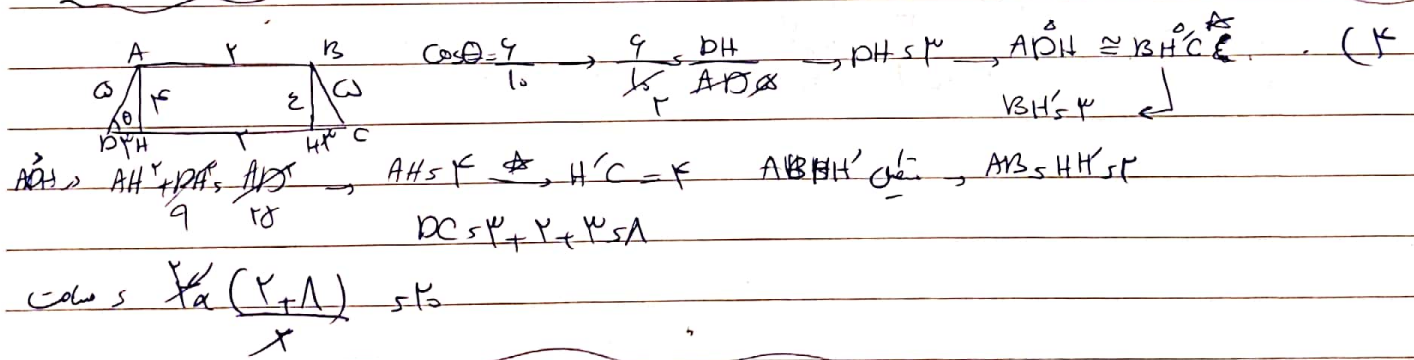 ۴) cosθ = 6/10 → 6/10 = DH/AD 5 2 → DH = ۳ → ADH ≅ BH'C ☆
BH' = ۳
A ۲ B
۵ ۴ ٤ ۵
θ
D ۳ H ۲ H' ۳ C
ADH → AH² + DH² = AD² → AH = ۴ ☆→ H'C = ۴ ABHH' مستطیل → AB = HH' = ۲
۹ ۲۵
DC = ۳ + ۲ + ۳ = ۸
مساحت = ۴ × (۲ + ۸) / ۲ = ۲۰